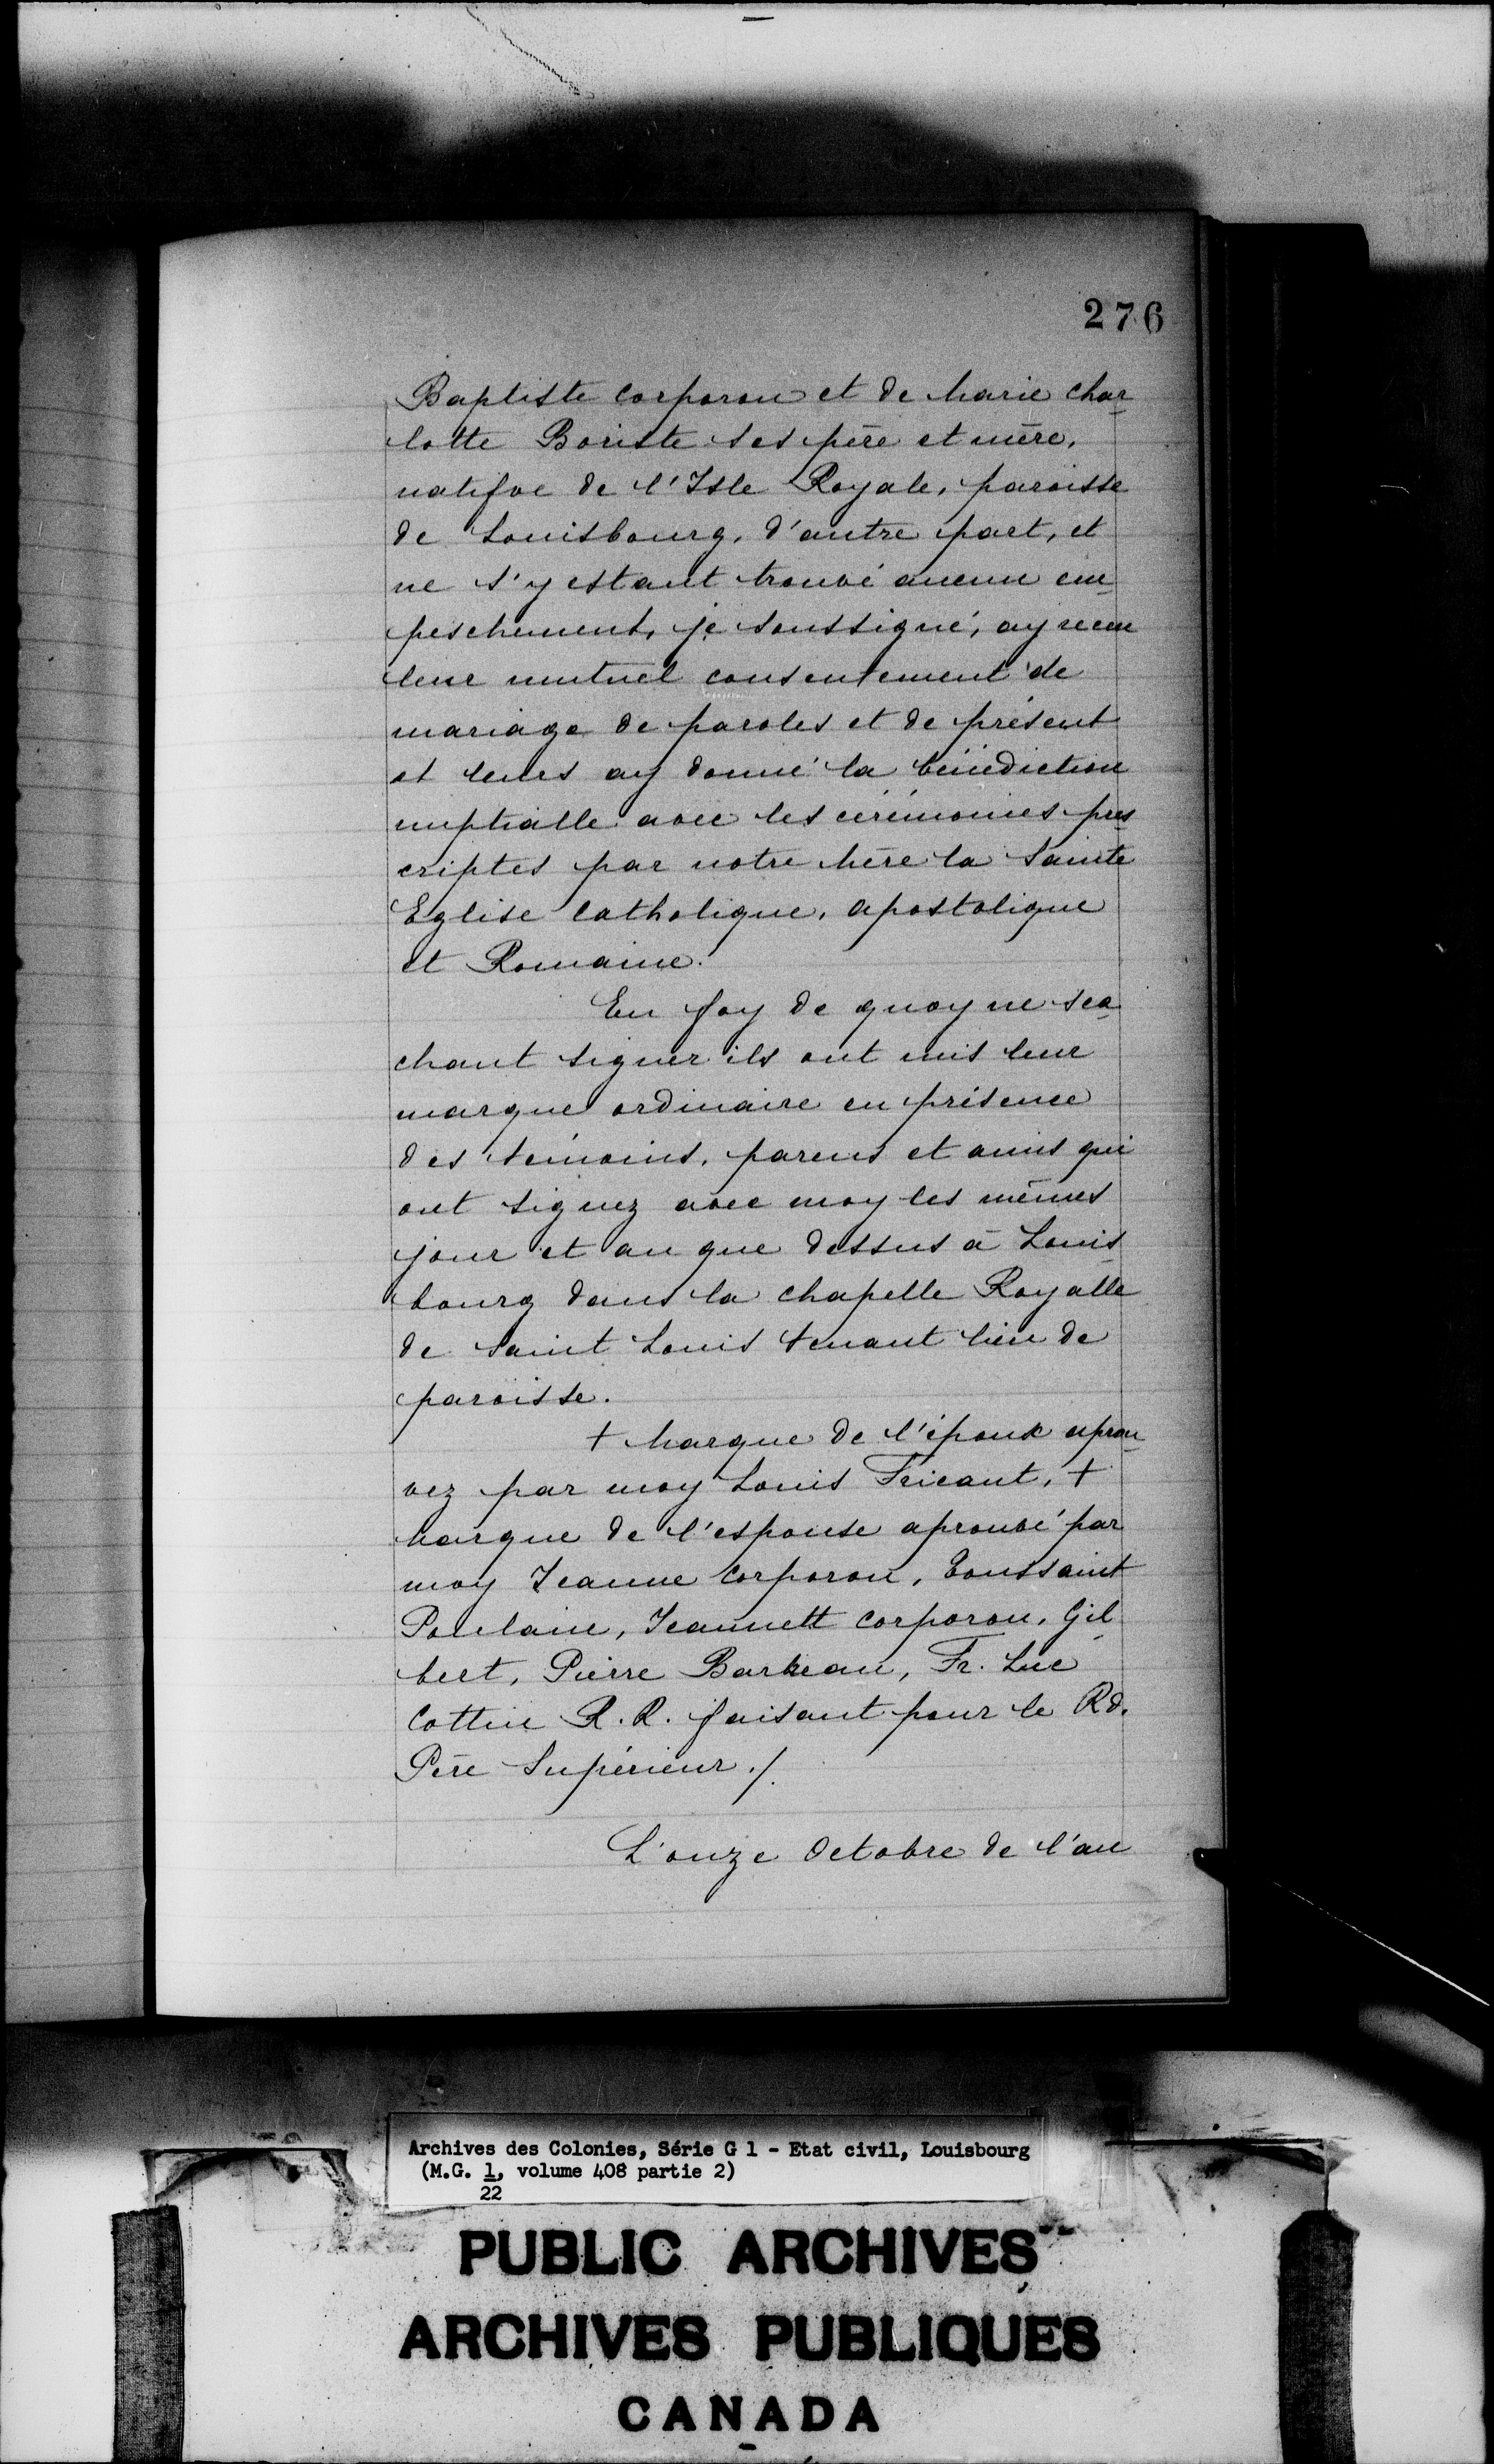 276
Baptiste Corporon et de Marie Char-
lotte Boriste ses père et mère,
natifve de l'Isle Royale, paroisse
de Louisbourg, d'autre part, et
ne s'y estant trouvé aucun em-
peschement, je soussigné, ay receu
leur mutuel consentement de
mariage de paroles et de présent
et leurs ay donné la bénédiction
nuptialle avec les cérémonies pres-
criptes par notre Mère la Sainte
Eglise Catholique, Apostolique
et Romaine.
En foy de quoy ne sca-
chant signer ils ont mis leur
marque ordinaire en présence
des témoins, parens et amis qui
ont signez avec moy les mêmes
jour et an que dessus à Louis-
bourg dans la chapelle Royalle
de Saint Louis tenant lieu de
paroisse.
+ Marque de l'époux aprou-
vez par moy Louis Fricaut, +
Marque de l'espouse aprouvé par
moy Jeanne Corporon, Toussaint
Poulain, Jeannett Corporon, Gil-
bert, Pierre Barbeau, Fr. Luc
Cottin R.R. faisant pour le Rd.
Père Supérieur ./.
L'onze Octobre de l'an
Archives des Colonies, Série G 1 - Etat civil, Louisbourg
(M.G. 1, volume 408 partie 2)
22
PUBLIC ARCHIVES
ARCHIVES PUBLIQUES
CANADA